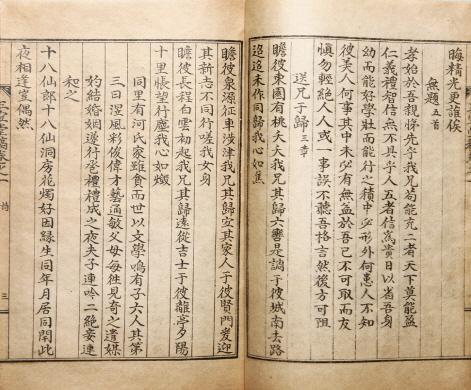 晦精光更誰俟
無題 五首
孝始於吾親悌先乎我兄苟能充二者天下莫能盈
仁義禮智信無不具乎人五者信為貴日以省吾身
幼而能好學壯而能行之積中必形外何患人不知
彼美人何事其中未必有無益於吾己不可取而友
愼勿輕絶人人或一事誤不聽吾格言然後方可阻
送兄于歸 三章
瞻彼東園有桃夭夭我兄其歸六轡是調于彼城南去路
迢迢未作同歸我心如焦
瞻彼泉源征車涉津我兄其歸宜其家人于彼賢門爰迎
其新吉不同行嗟我人身
瞻彼長程白雲初起我兄其歸遠從吉士于彼龍亭夕陽
十里悵望行塵我心如燬
同里有河氏家雖貧而世以文學鳴有子六人其第
三曰湿風彩俊偉才藝通敏父母每往見奇之遣媒
妁結婚姻遂行巹禮禮成之夜夫子連吟二絶妾連
和之
十八仙郎十八仙洞房花燭好因緣生同年月居同閈此
夜相逢豈偶然
詩
三